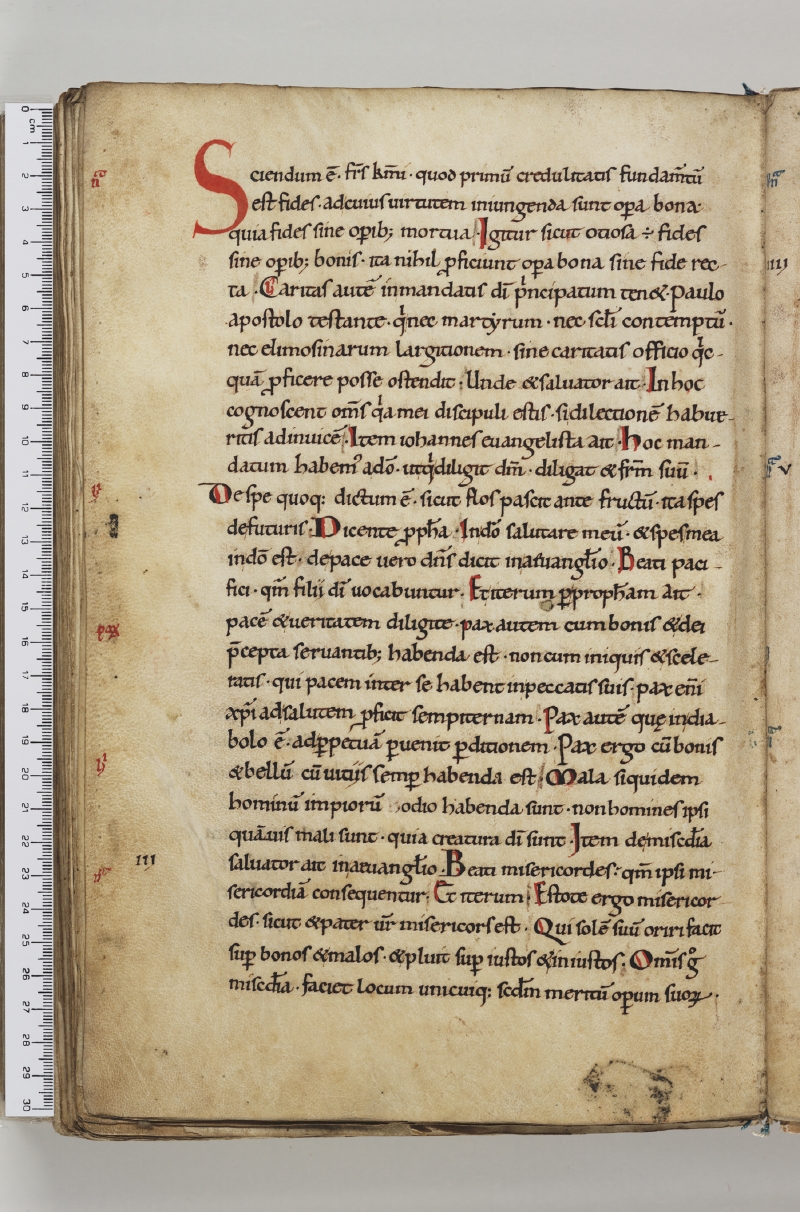 Sciendum ē· fr̄s km̄i· quod primū credulitatis fundam̄tū
est fides· ad cuius uirtutem iniungenda sunt oꝑa bona·
quia fides sine oꝑib; mortua· Igitur sicut otiosa ÷ fides
sine oꝑib; bonis· ita nihil ꝓficiunt oꝑa bona sine fide rec-
ta· Caritas autē in mandatis dī pͥncipatum ten&· Paulo
apostolo testante· qͥ nec martẏrum· nec sc̄li contemptū·
nec elimosinarum largitionem· sine caritatis officio qͥc-
quā ꝓficere posse ostendit· Unde & saluator ait· In hoc
cognoscent om̄s qͥa mei discipuli estis· si dilectionē habue-
ritis adinuicē· Item iohannes euangelista ait· Hoc man-
datum habemꝰ a dō· ut qͥ diligit dm̄· diligat & frm̄ suū·
De spe quoq: dictum ē· sicut flos pascit ante fructū· ita spes
de futuris· Dicente ꝓph̄a· In dō salutare meū· & spes mea
in dō est· de pace uero dn̄s dicit in aeuangl̄io· Beati paci-
fici· qm̄ filii dī uocabuntur· Et iterum ꝑ proph̄am ait·
pacē & ueritatem diligite· pax autem cum bonis & dei
p̄cepta seruantib; habenda est· non cum iniquis & scele-
ratis· qui pacem inter se habent in peccatis suis· pax enī
xp̄i ad salutem ꝓficit sempiternam· Pax autē quę in dia-
bolo ē· ad ꝑpetuā ꝑuenit ꝑditionem· Pax ergo cū bonis
& bellū cū uitiis semꝑ habenda est· Mala siquidem
hominū impiorū odio habenda sunt· non homines ipsi
quāuis mali sunt· quia creatura dī sunt· Item de miscd̄ia
saluator ait in aeuangl̄io· Beati misericordes· qm̄ ipsi mi-
III
sericordiā consequentur· Et iterum· Estote ergo misericor
des· sicut & pater ur̄ misericors est· Qui solē suū oriri facit
suꝑ bonos & malos· & pluit suꝑ iustos & iniustos· Om̄is gͦ
miscd̄ia· faciet locum unicuiq: scd̄m meritū oꝑum suoꝝ·
III
V